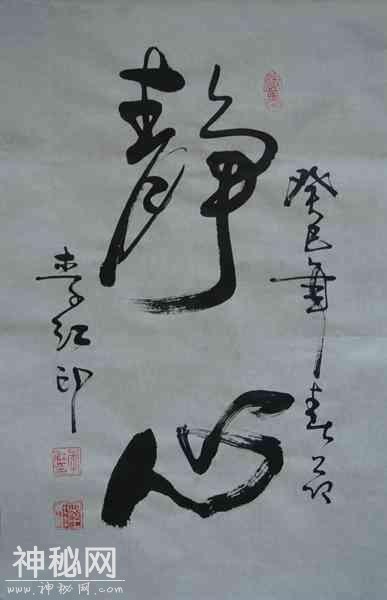 癸巳年春节
静心
李红印
神秘网
www.神秘网.com